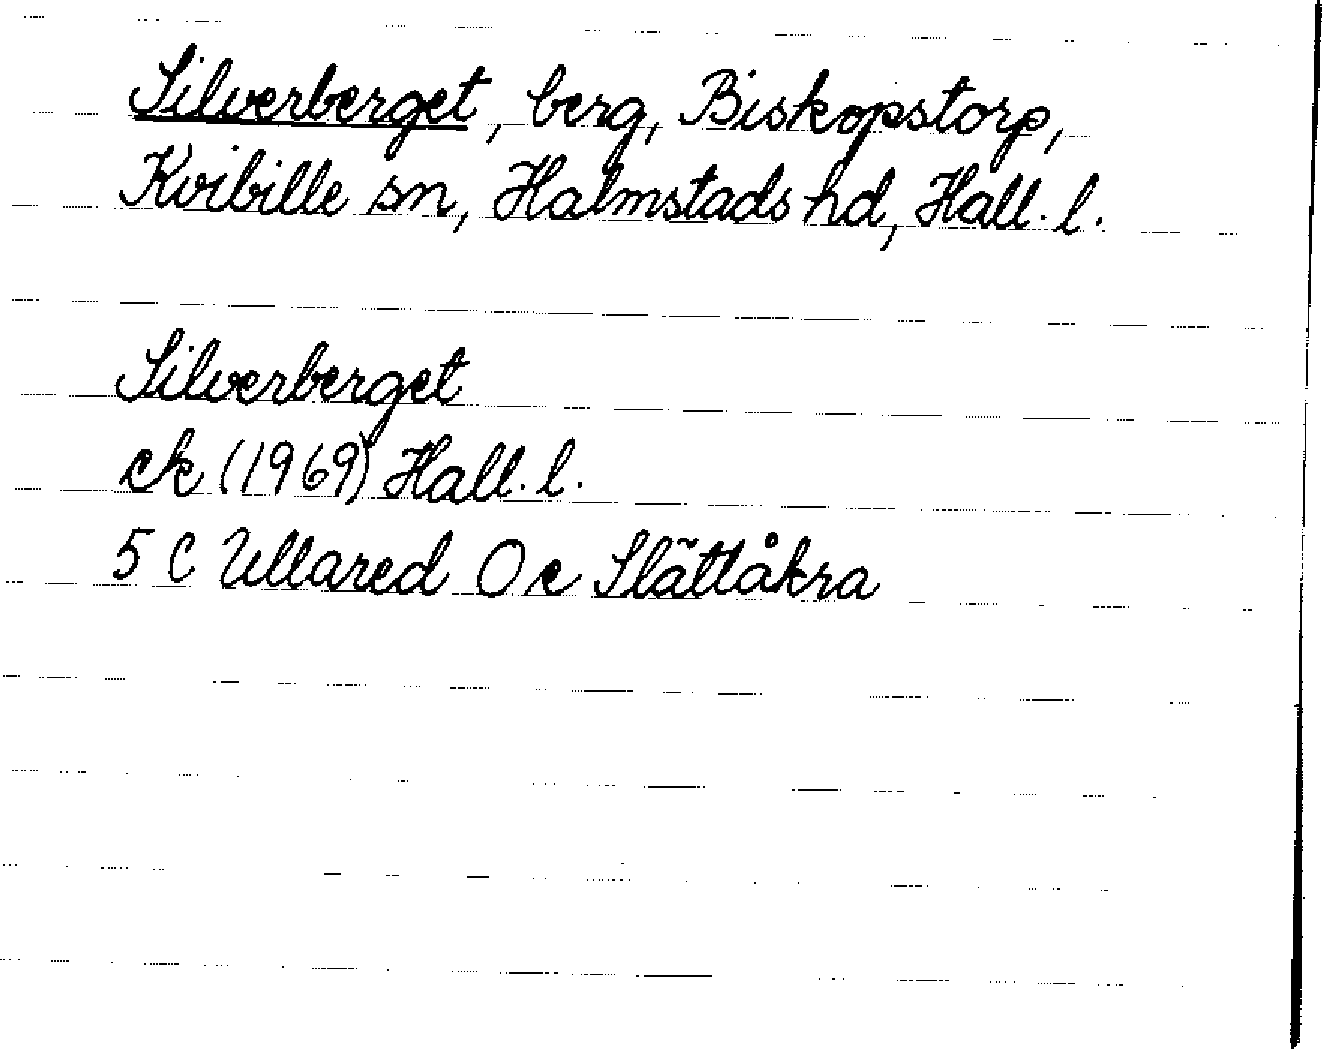 Silverberget, berg, Biskopstorp,
Kvibille sn, Halmstads hd, Hall. l.
Silverberget
ek (1969) Hall. l.
5 C Ullared O e Slättåkra